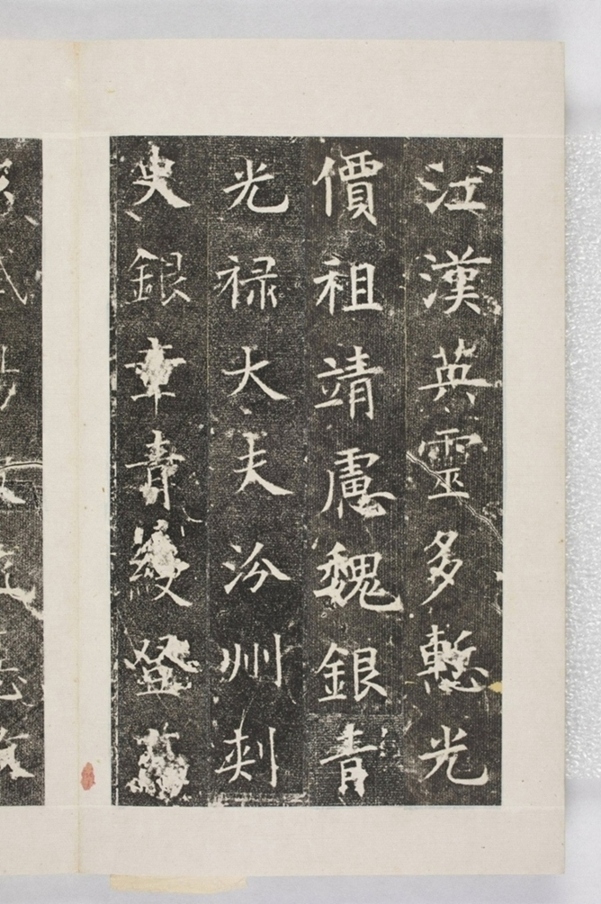 江漢英靈多慙光
價祖靖慮魏銀青
光禄大夫汾州刾
史銀章青綬登